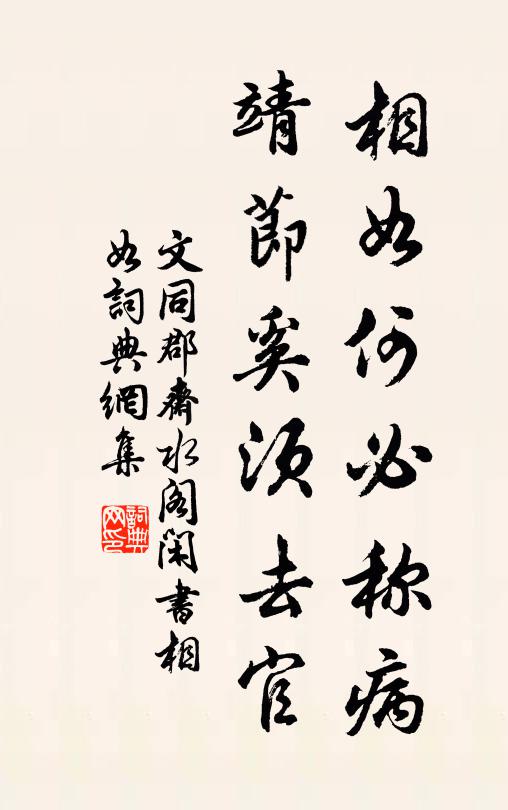 相如何必称病
靖節奚须去官
文同郡齋水阁闲書相
如詞典網集
詞典
网印